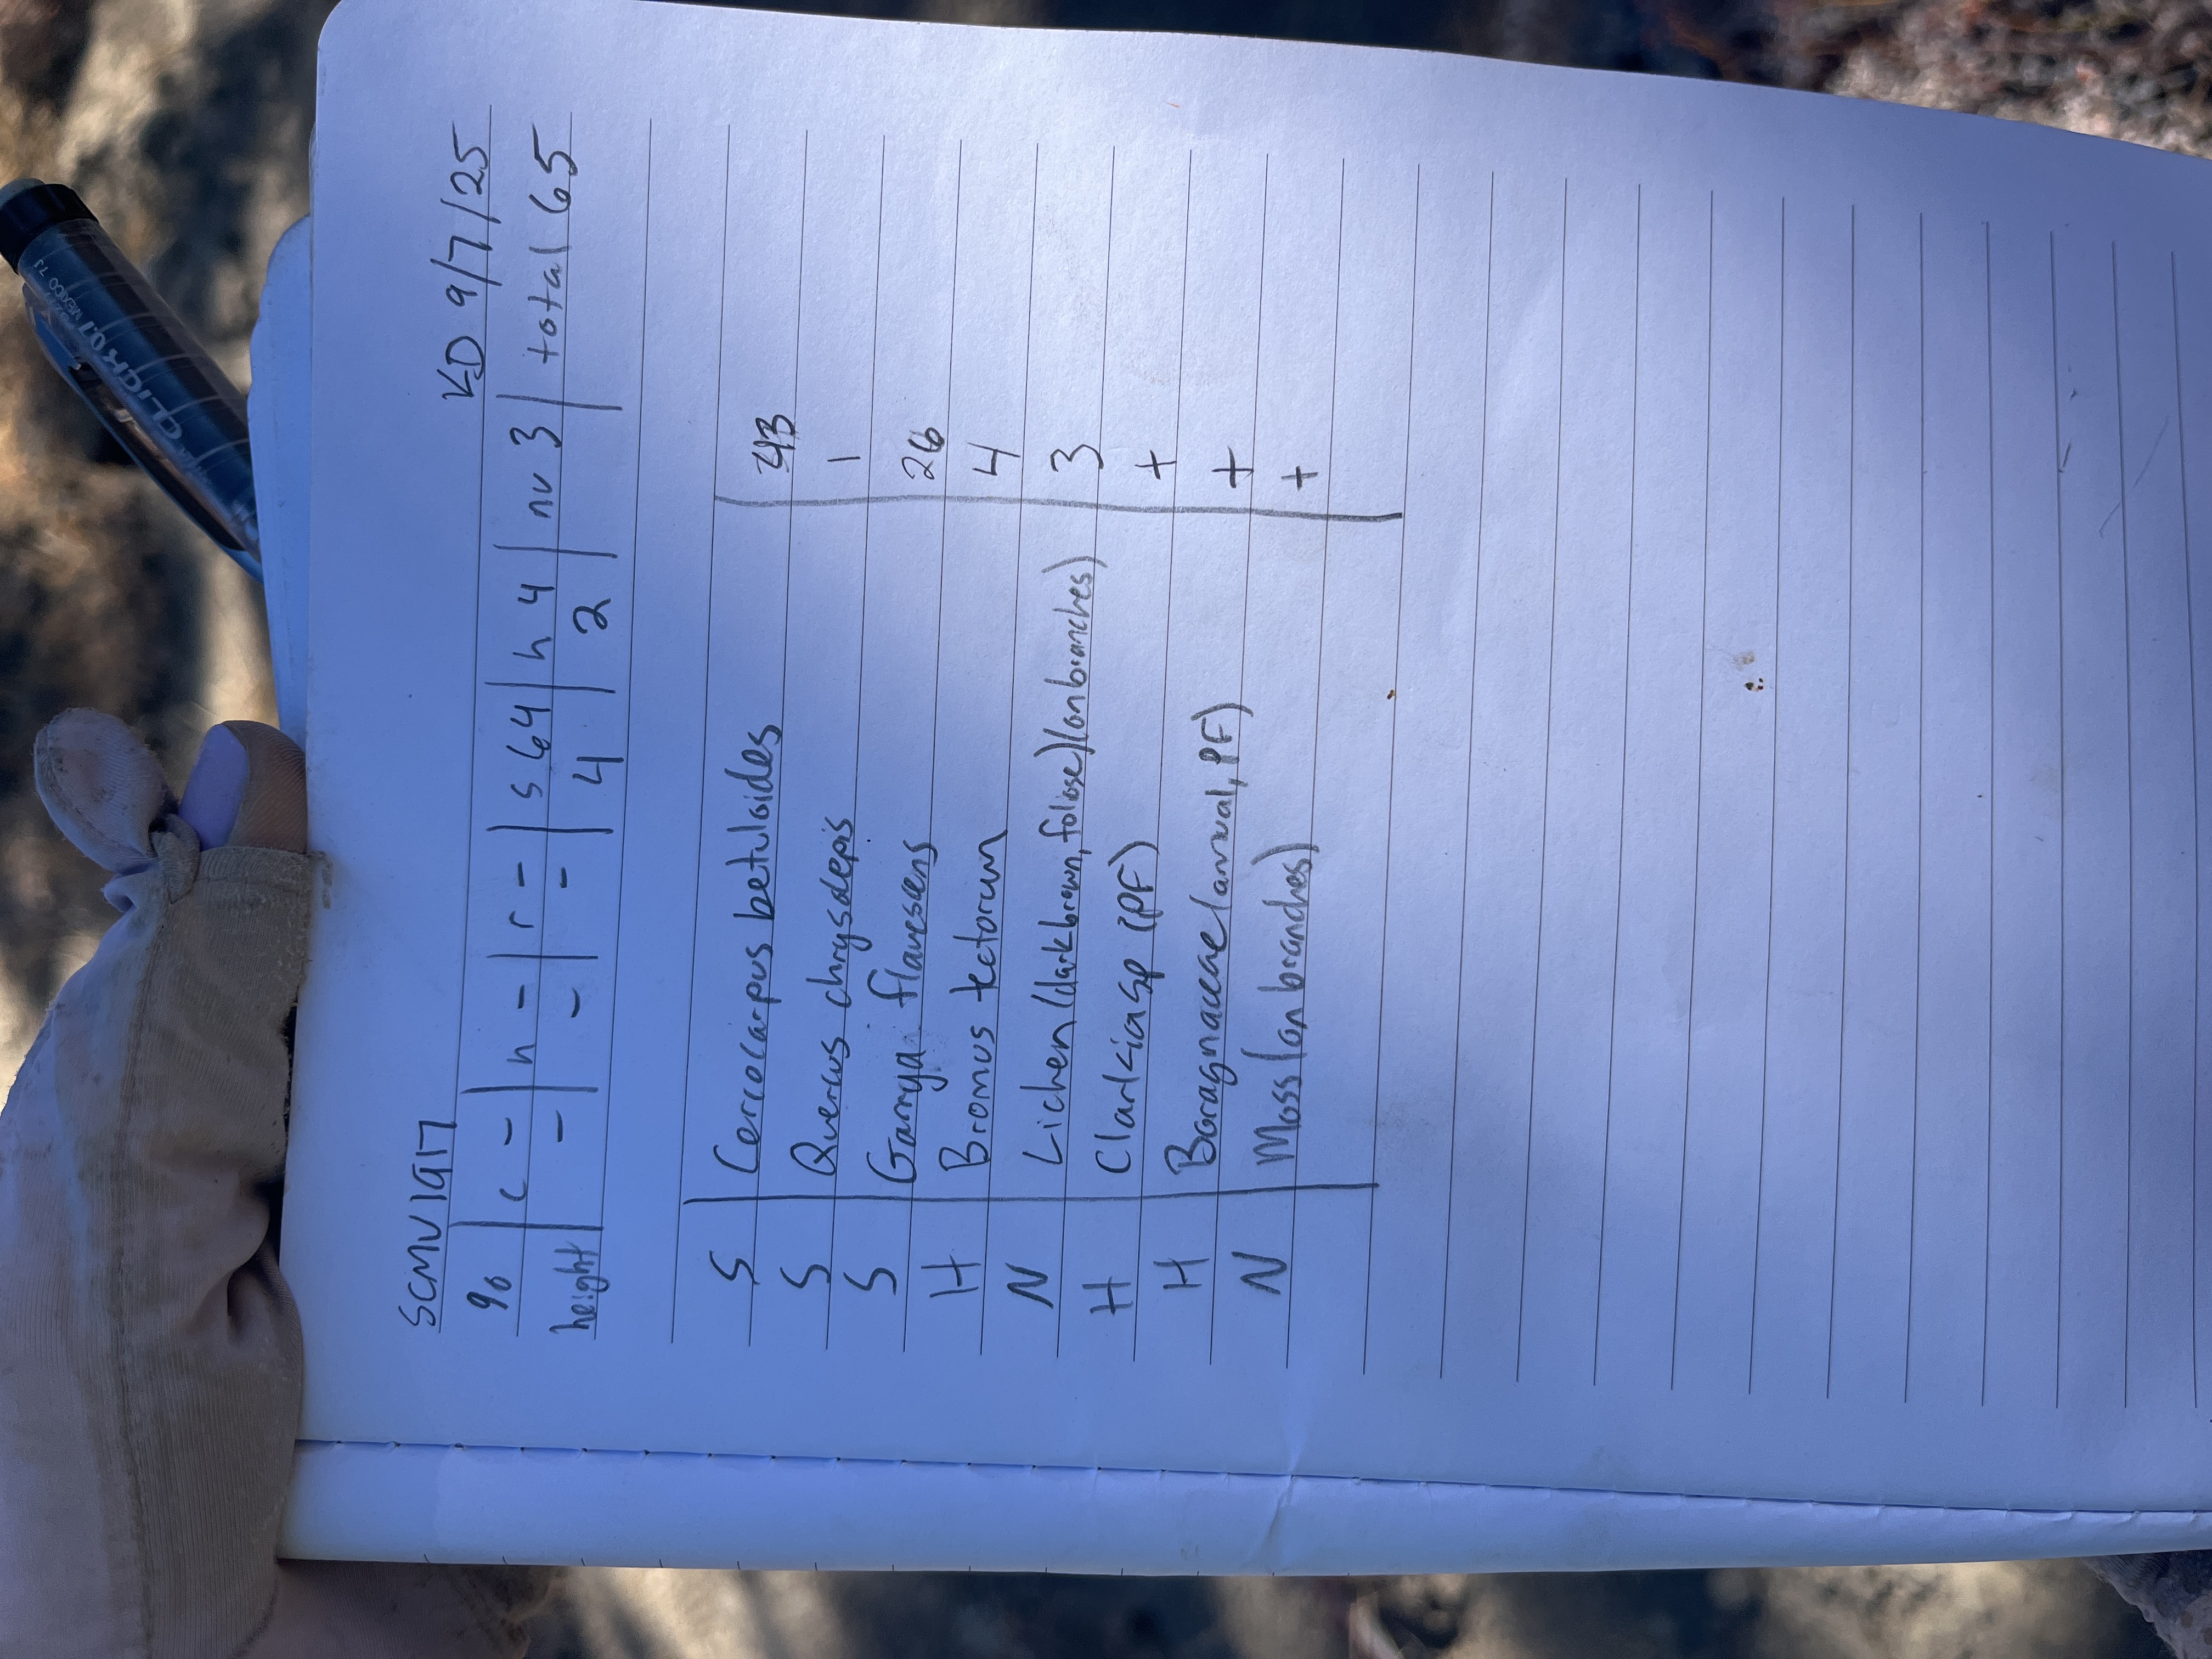 SCMV1917 KD 9/7/25
% | c - | h - | r - | s 64 | h 4 | nv 3 | total 65
height | - | - | - | 4 | 2 |
S | Cercocarpus betuloides | 43
S | Quercus chrysolepis | 1
S | Garrya flavescens | 26
H | Bromus tectorum | 4
N | Lichen (dark brown, foliose) (on branches) | 3
H | Clarkia sp (PF) | +
H | Boraginaceae (annual, PF) | +
N | Moss (on branches) | +
CLICKR 0.7
MEXICO 7J